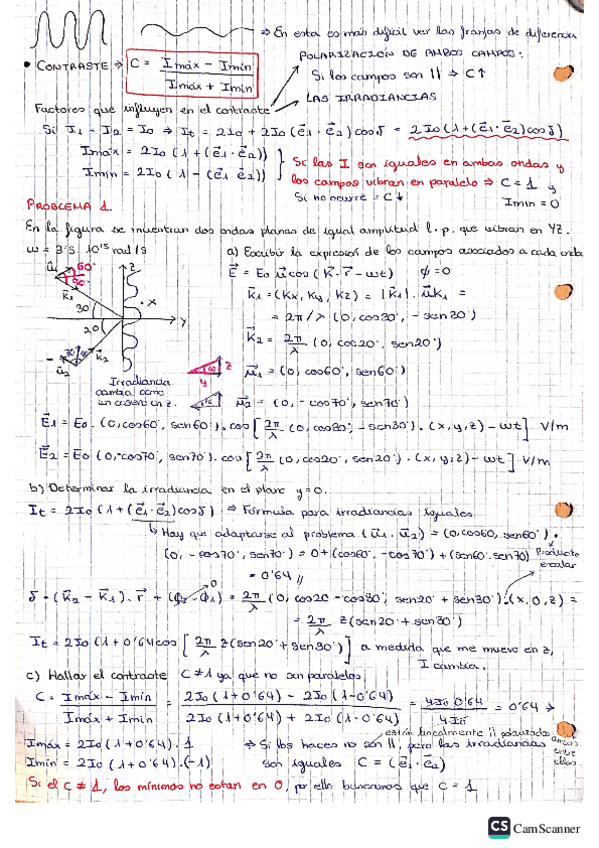 ⇒ En esta es más difícil ver las franjas de diferencia
POLARIZACIÓN DE AMBOS CAMPOS:
• CONTRASTE ⇒ C = (Imáx - Imín) / (Imáx + Imín)
Si los campos son || ⇒ C↑
LAS IRRADIANCIAS
Factores que influyen en el contraste
Si I1 - I2 = I0 ⇒ It = 2I0 + 2I0 (e⃗1 · e⃗2) cosδ = 2I0 (1 + (e⃗1 · e⃗2) cosδ)
Imáx = 2I0 (1 + (e⃗1 · e⃗2))
Imín = 2I0 (1 - (e⃗1 · e⃗2))
Si las I son iguales en ambas ondas y
los campos vibran en paralelo ⇒ C = 1 y
Si no ocurre = C↓ Imin = 0
PROBLEMA 1.
En la figura se muestran dos ondas planas de igual amplitud l.p. que vibran en YZ.
ω = 3's · 10^15 rad/s
a) Escribir la expresión de los campos asociados a cada onda
E⃗ = E0 u⃗ cos (k⃗ · r⃗ - ωt) ϕ = 0
u⃗1 60° z
k⃗1 30° x
y
20°
u⃗2 k⃗2
k⃗1 = (kx, ky, kz) = |k⃗1| · u⃗k1 =
= 2π/λ (0, cos30°, - sen30°)
k⃗2 = 2π/λ (0, cos20°, sen20°)
u⃗1 = (0, cos60°, sen60°)
60 z
y
Irradiancia
cambia como
un coseno en z.
u⃗2 = (0, -cos70°, sen70°)
E⃗1 = E0 · (0, cos60°, sen60°) · cos [2π/λ (0, cos30°, -sen30°) · (x, y, z) - ωt] V/m
E⃗2 = E0 (0, -cos70°, sen70°) · cos [2π/λ (0, cos20°, sen20°) · (x, y, z) - ωt] V/m
b) Determinar la irradiancia en el plano y=0.
It = 2I0 (1 + (e⃗1 · e⃗2) cosδ) ⇒ Fórmula para irradiancias iguales
Hay que adaptarse al problema (u⃗1 · u⃗2) = (0, cos60, sen60°) ·
(0, -cos70°, sen70°) = 0 + (cos60 · -cos70°) + (sen60 · sen70) Producto
escalar
= 0'64 //
δ = (k⃗2 - k⃗1) · r⃗ + (ϕ2 - ϕ1) = 2π/λ (0, cos20 - cos30°, sen20° + sen30°) · (x, 0, z) =
0
= 2π/λ z (sen20° + sen30°)
It = 2I0 (1 + 0'64 cos [2π/λ z (sen20° + sen30°)] a medida que me muevo en z,
I cambia.
c) Hallar el contraste C ≠ 1 ya que no son paralelos
C = (Imáx - Imín) / (Imáx + Imín) = (2I0 (1 + 0'64) - 2I0 (1 - 0'64)) / (2I0 (1 + 0'64) + 2I0 (1 - 0'64)) = 4I0 0'64 / 4I0 = 0'64 ⇒
están linealmente || polarizados
ambas
entre
ellas
Imáx = 2I0 (1 + 0'64) · 1
⇒ Si los haces no son ||, pero las irradiancias
Imín = 2I0 (1 + 0'64) · (-1)
son iguales C = (e⃗1 · e⃗2)
Si el C ≠ 1, los mínimos no están en 0, por ello buscamos que C = 1
CS CamScanner